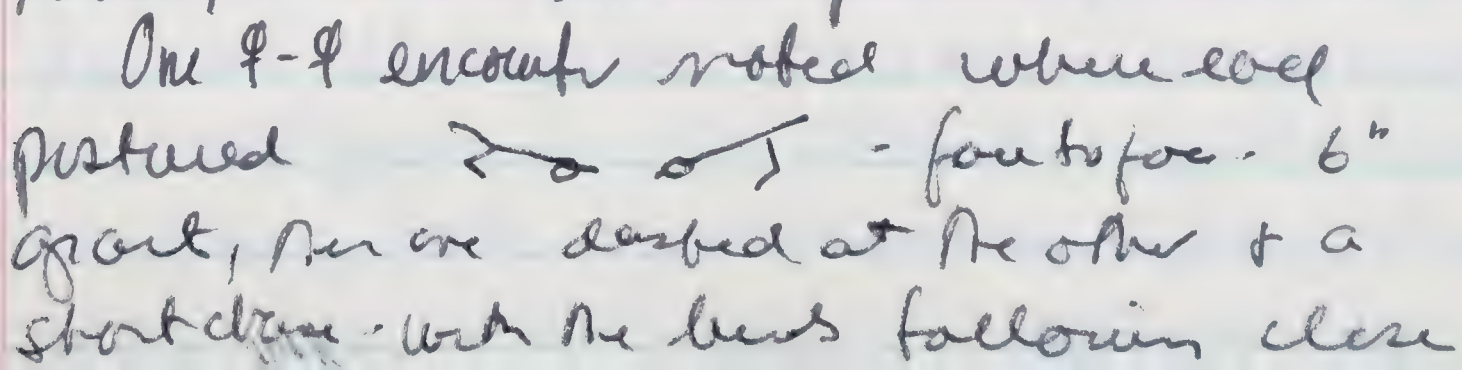 One ♀-♀ encounter noted when each
postured - face to face - 6"
apart, then one dashed at the other & a
short chase - with the birds following close